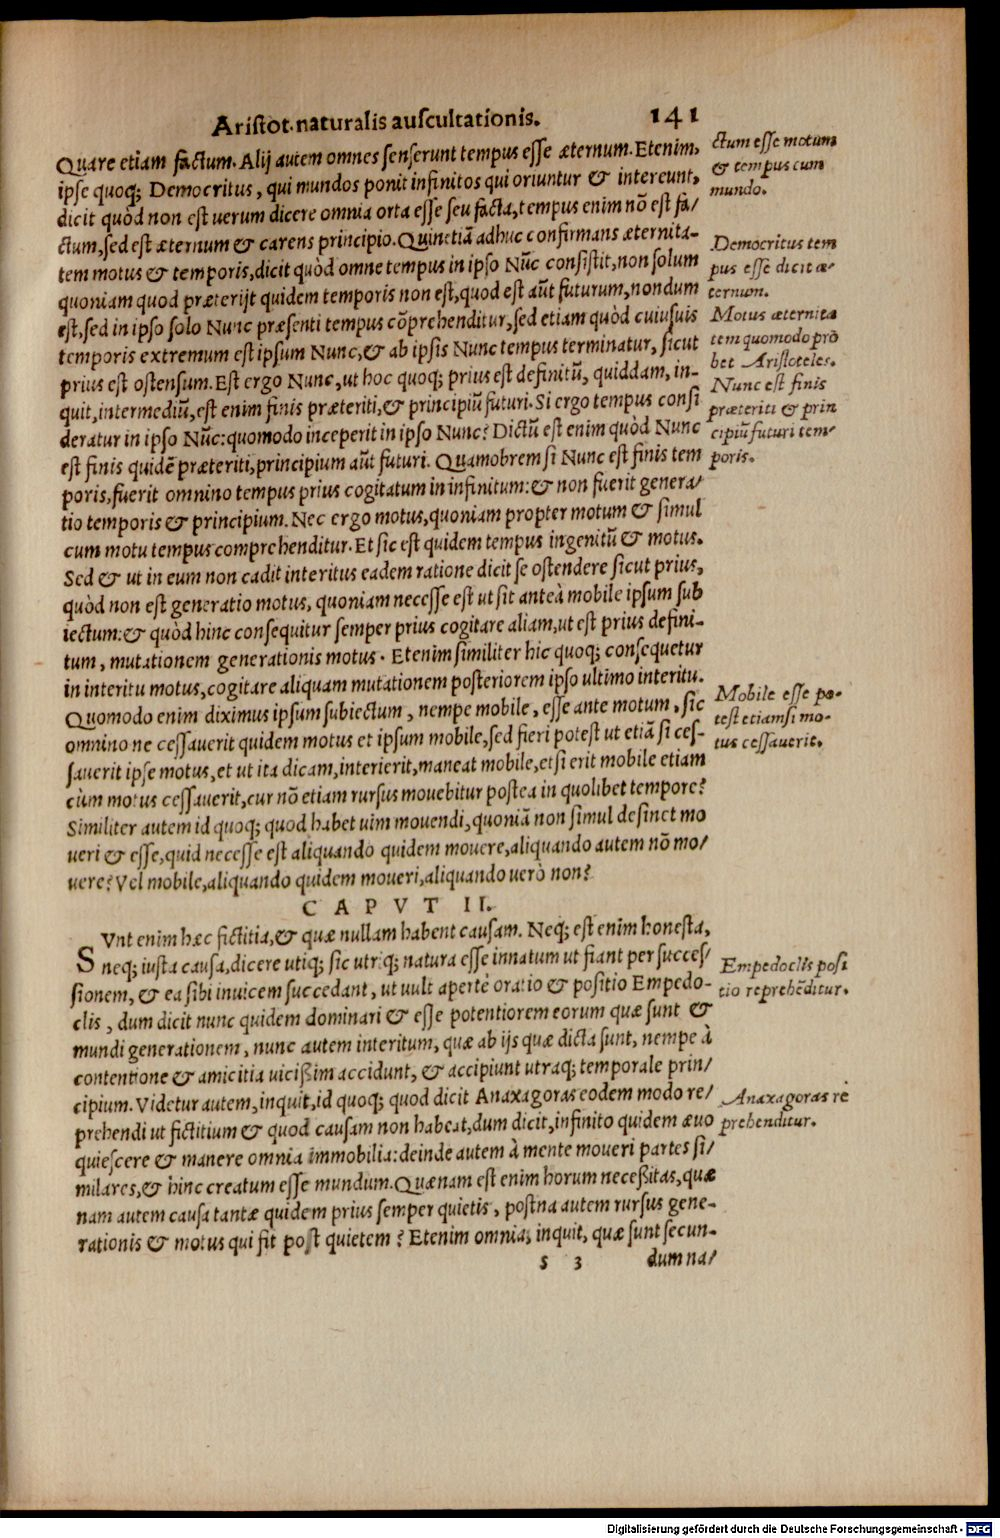 Aristot. naturalis auscultationis. 141
Quare etiam factum. Alij autem omnes senserunt tempus esse æternum. Etenim,
ipse quoq; Democritus, qui mundos ponit infinitos qui oriuntur & intereunt,
dicit quòd non est uerum dicere omnia orta esse seu facta, tempus enim nō est fa/
ctum, sed est æternum & carens principio. Quinetiā adhuc confirmans æternita-
tem motus & temporis, dicit quòd omne tempus in ipso Nūc consistit, non solum
quoniam quod præterijt quidem temporis non est, quod est aūt futurum, nondum
est, sed in ipso solo Nunc præsenti tempus cōprehenditur, sed etiam quòd cuiusuis
temporis extremum est ipsum Nunc, & ab ipsis Nunc tempus terminatur, sicut
prius est ostensum. Est ergo Nunc, ut hoc quoq; prius est definitū, quiddam, in-
quit, intermediū, est enim finis præteriti, & principiū futuri. Si ergo tempus consi
deratur in ipso Nūc: quomodo inceperit in ipso Nunc? Dictū est enim quòd Nunc
est finis quidē præteriti, principium aūt futuri. Quamobrem si Nunc est finis tem
poris, fuerit omnino tempus prius cogitatum in infinitum: & non fuerit genera/
tio temporis & principium. Nec ergo motus, quoniam propter motum & simul
cum motu tempus comprehenditur. Et sic est quidem tempus ingenitū & motus.
Sed & ut in eum non cadit interitus eadem ratione dicit se ostendere sicut prius,
quòd non est generatio motus, quoniam necesse est ut sit anteà mobile ipsum sub
iectum: & quòd hinc consequitur semper prius cogitare aliam, ut est prius defini-
tum, mutationem generationis motus. Etenim similiter hic quoq; consequetur
in interitu motus, cogitare aliquam mutationem posteriorem ipso ultimo interitu.
Quomodo enim diximus ipsum subiectum, nempe mobile, esse ante motum, sic
omnino ne cessauerit quidem motus et ipsum mobile, sed fieri potest ut etiā si ces-
sauerit ipse motus, et ut ita dicam, interierit, maneat mobile, etsi erit mobile etiam
cùm motus cessauerit, cur nō etiam rursus mouebitur postea in quolibet tempore?
Similiter autem id quoq; quod habet uim mouendi, quoniā non simul desinet mo
ueri & esse, quid necesse est aliquando quidem mouere, aliquando autem nō mo/
uere? Vel mobile, aliquando quidem moueri, aliquando uerò non?
CAPVT II.
SVnt enim hæc fictitia, & quæ nullam habent causam. Neq; est enim honesta,
neq; iusta causa, dicere utiq; sic utriq; natura esse innatum ut fiant per succes/
sionem, & ea sibi inuicem succedant, ut uult apertè oratio & positio Empedo-
clis, dum dicit nunc quidem dominari & esse potentiorem eorum quæ sunt &
mundi generationem, nunc autem interitum, quæ ab ijs quæ dicta sunt, nempe à
contentione & amicitia uicißim accidunt, & accipiunt utraq; temporale prin/
cipium. Videtur autem, inquit, id quoq; quod dicit Anaxagoras eodem modo re/
prehendi ut fictitium & quod causam non habeat, dum dicit, infinito quidem æuo
quiescere & manere omnia immobilia: deinde autem à mente moueri partes si/
milares, & hinc creatum esse mundum. Quænam est enim horum neceßitas, quæ
nam autem causa tantæ quidem prius semper quietis, postna autem rursus gene-
rationis & motus qui fit post quietem? Etenim omnia, inquit, quæ sunt secun-
s 3 dum na/
ctum esse motum
& tempus cum
mundo.
Democritus tem
pus esse dicit æ-
ternum.
Motus æternita
tem quomodo prō
bet Aristoteles.
Nunc est finis
præteriti & prin
cipiū futuri tem-
poris.
Mobile esse po-
test etiamsi mo-
tus cessauerit.
Empedoclis posi
tio reprehēditur.
Anaxagoras re
prehenditur.
Digitalisierung gefördert durch die Deutsche Forschungsgemeinschaft - DFG